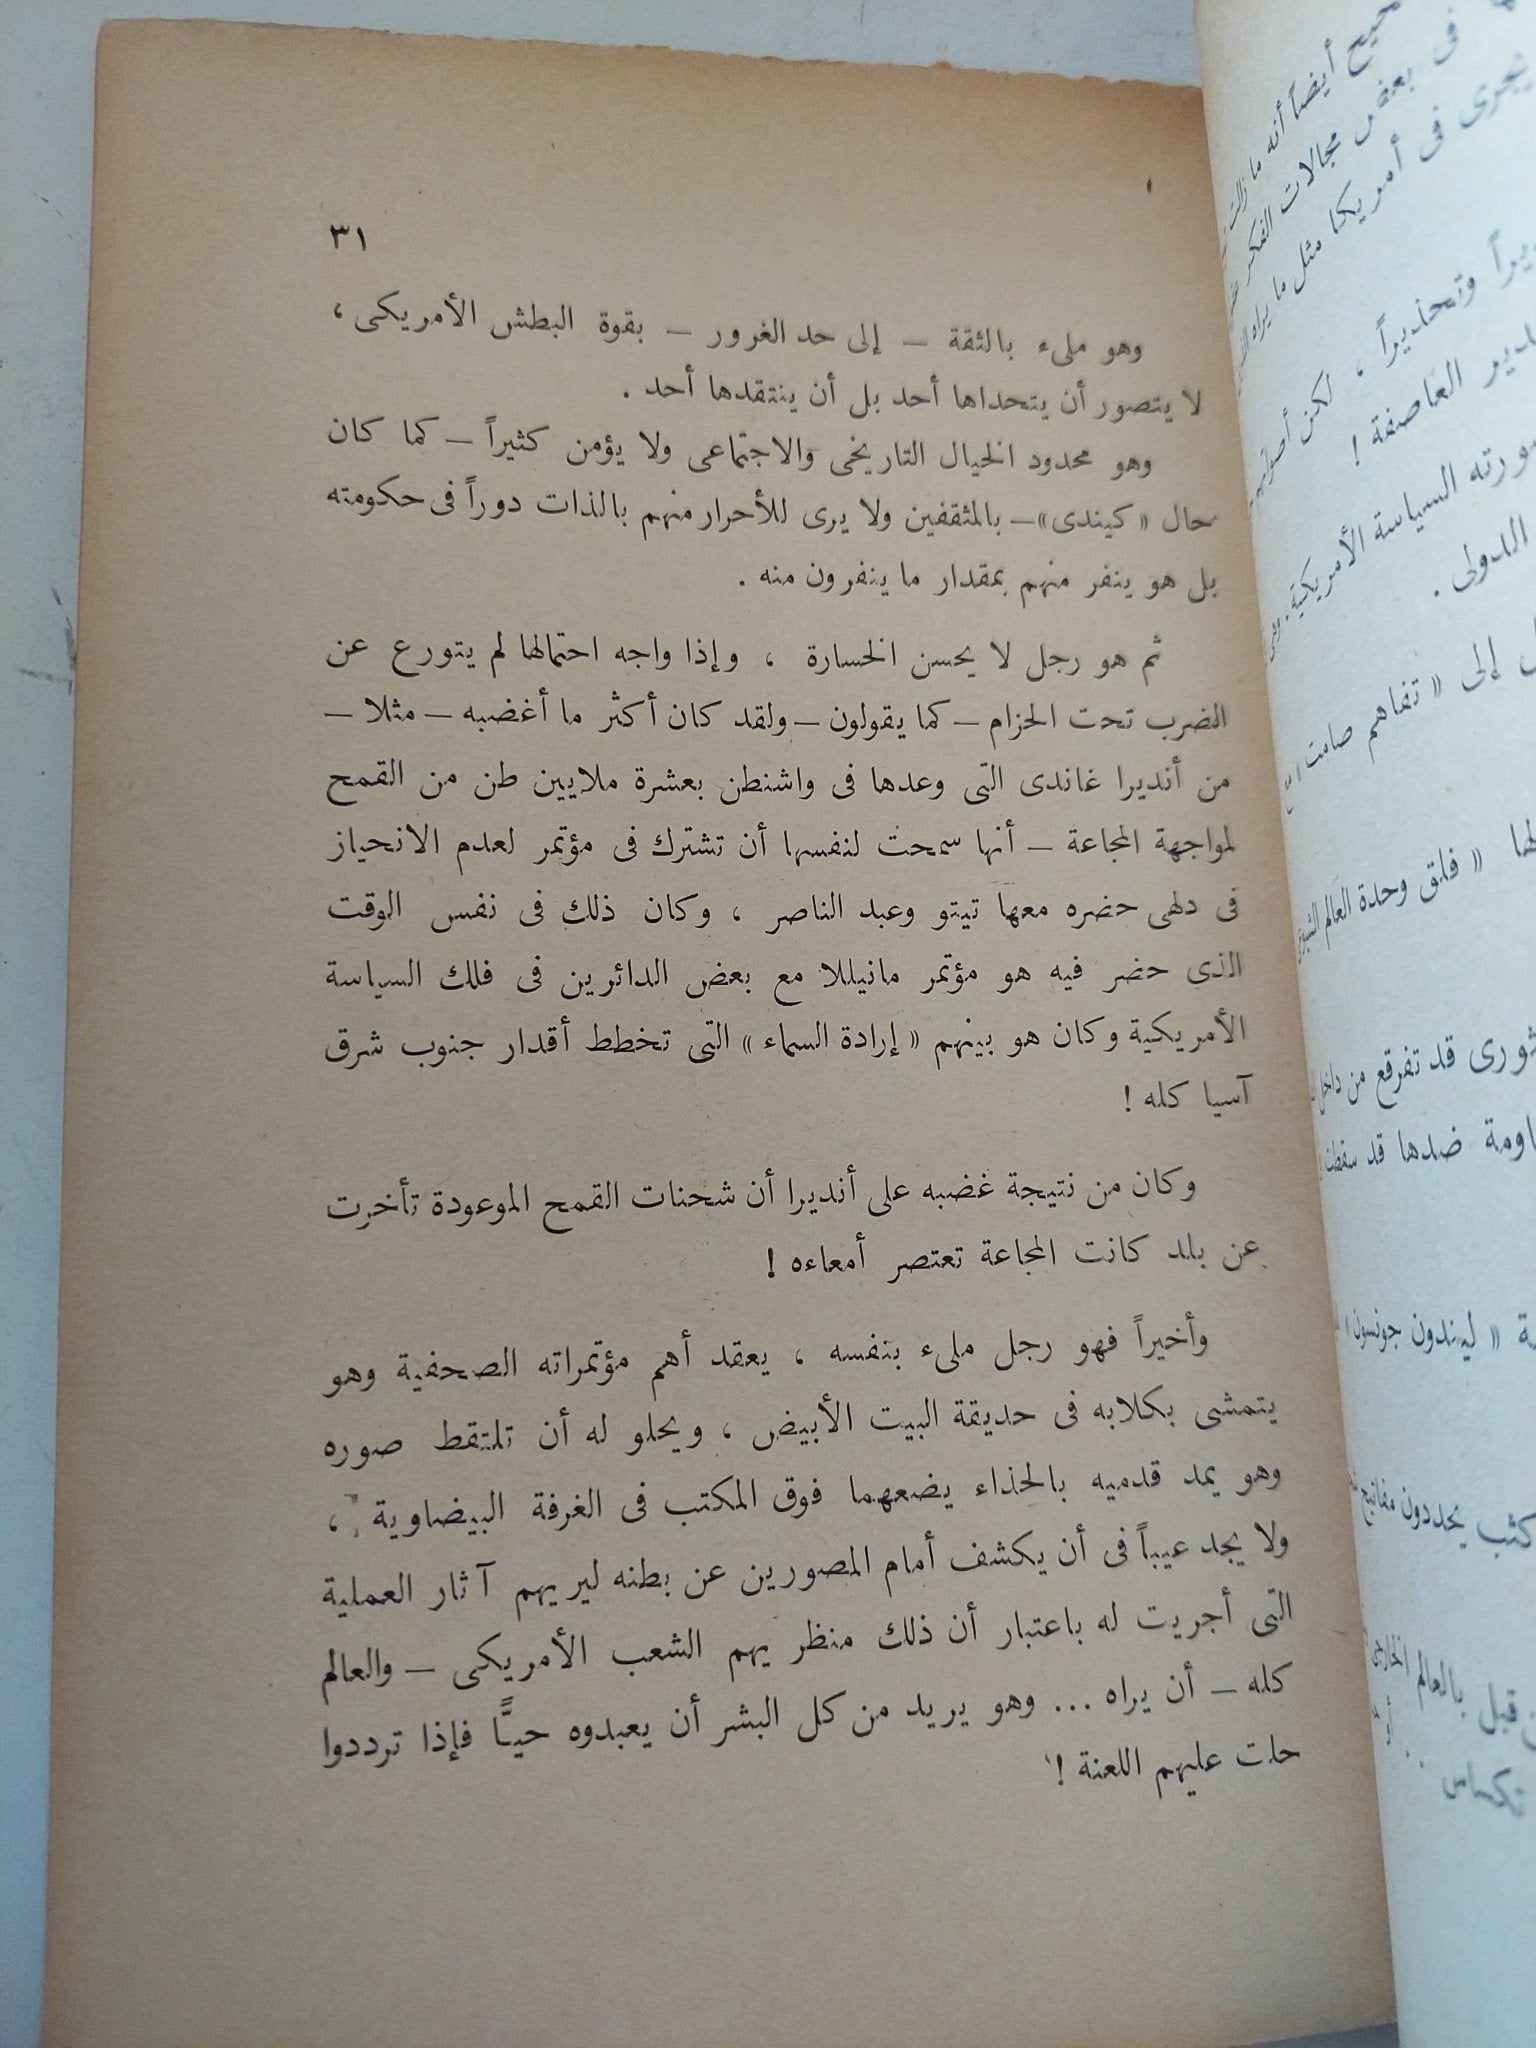 ٣١
وهو ملىء بالثقة – إلى حد الغرور – بقوة البطش الأمريكى ،
لا يتصور أن يتحداها أحد بل أن ينتقدها أحد .
وهو محدود الخيال التاريخى والاجتماعى ولا يؤمن كثيراً – كما كان
حال « كيندى » – بالمثقفين ولا يرى للأحرار منهم بالذات دوراً فى حكومته
بل هو ينفر منهم بمقدار ما ينفرون منه .
ثم هو رجل لا يحسن الخسارة ، وإذا واجه احتمالها لم يتورع عن
الضرب تحت الحزام – كما يقولون – ولقد كان أكثر ما أغضبه – مثلا –
من أنديرا غاندى التى وعدها فى واشنطن بعشرة ملايين طن من القمح
لمواجهة المجاعة – أنها سمحت لنفسها أن تشترك فى مؤتمر لعدم الانحياز
فى دلهى حضره معها تيتو وعبد الناصر ، وكان ذلك فى نفس الوقت
الذى حضر فيه هو مؤتمر مانيللا مع بعض الدائرين فى فلك السياسة
الأمريكية وكان هو بينهم « إرادة السماء » التى تخطط أقدار جنوب شرق
آسيا كله !
وكان من نتيجة غضبه على أنديرا أن شحنات القمح الموعودة تأخرت
عن بلد كانت المجاعة تعتصر أمعاءه !
وأخيراً فهو رجل ملىء بنفسه ، يعقد أهم مؤتمراته الصحفية وهو
يتمشى بكلابه فى حديقة البيت الأبيض ، ويحلو له أن تلتقط صوره
وهو يمد قدميه بالحذاء يضعهما فوق المكتب فى الغرفة البيضاوية ،
ولا يجد عيباً فى أن يكشف أمام المصورين عن بطنه ليريهم آثار العملية
التى أجريت له باعتبار أن ذلك منظر يهم الشعب الأمريكى – والعالم
كله – أن يراه ... وهو يريد من كل البشر أن يعبدوه حيًّا فإذا ترددوا
حلت عليهم اللعنة !
أيضاً أنه ما زالت
فى بعض مجالات الفكر
يجرى فى أمريكا مثل ما يراه
وتحذيراً ، لكن
العاصفة !
السياسة الأمريكية .
الدولى .
إلى « تفاهم صامت
« فلق وحدة العالم
قد تفرقع من داخل
ضدها قد سقطت
« ليندون جونسون »
كثب يحددون مفاتيح
قبل بالعالم الخارجى